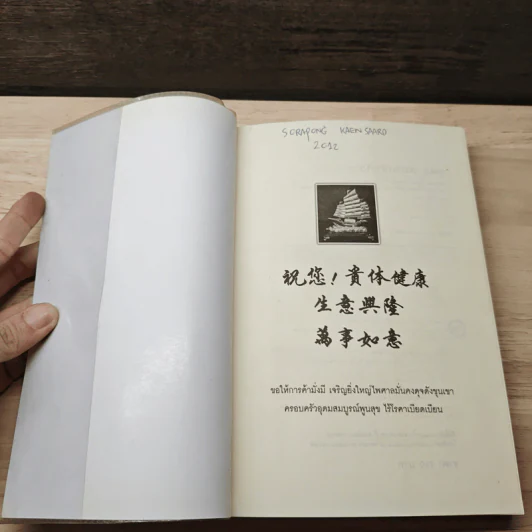 SORAPONG KAENSAARD
2012
祝您！貴体健康
生意興隆
萬事如意
ขอให้การค้ามั่งมี เจริญยิ่งใหญ่ไพศาลมั่นคงดุจดังขุนเขา
ครอบครัวอุดมสมบูรณ์พูนสุข ไร้โรคาเบียดเบียน